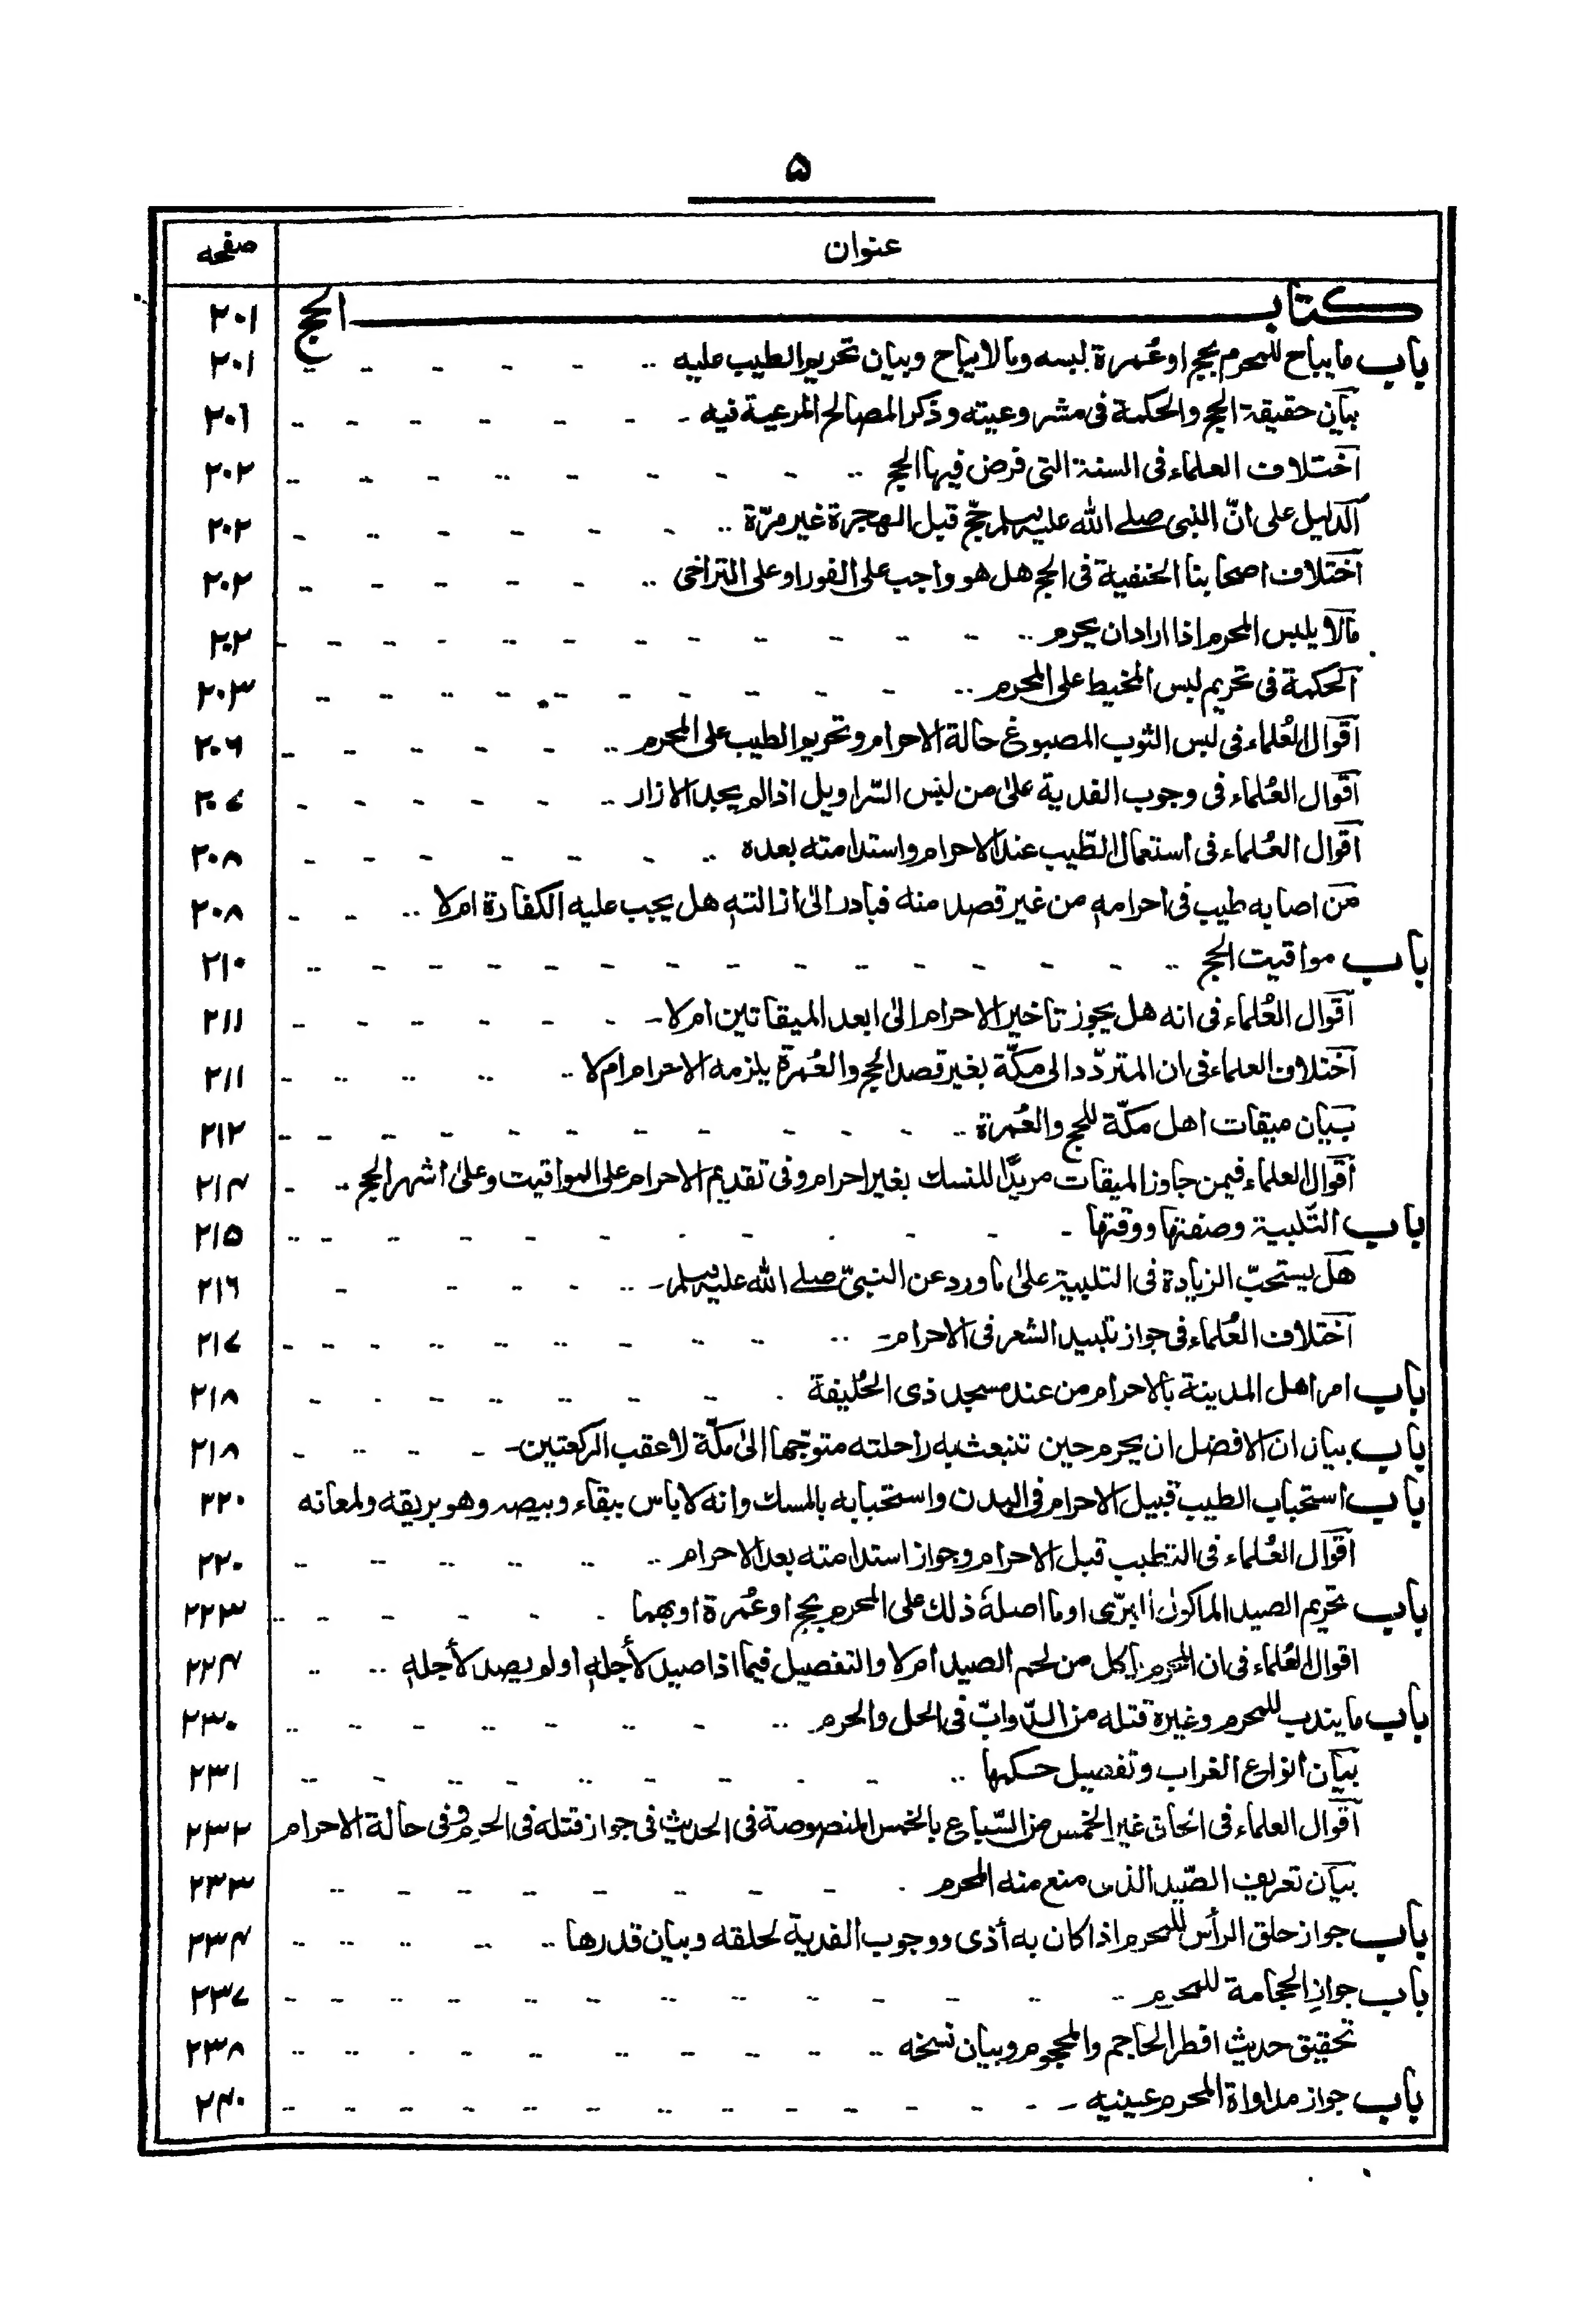 ۵
عنوان صفحه
كتاب الحج ۲۰۱
باب ما يباح للمحرم بحج او عُمرة لبسه وما لا يباح وبيان تحريم الطيب عليه ۲۰۱
بيان حقيقة الحج والحكمة فى مشروعيته وذكر المصالح المرعية فيه ۲۰۱
اختلاف العلماء فى السنة التى فرض فيها الحج ۲۰۲
الدليل على انّ النبى صلے الله عليه وسلم حجّ قبل الهجرة غير مرّة ۲۰۲
اختلاف اصحابنا الحنفية فى الحج هل هو واجب على الفور او على التراخى ۲۰۲
مالا يلبس المحرم اذا اراد ان يحرم ۲۰۲
الحكمة فى تحريم لبس المخيط على المحرم ۲۰۳
اقوال العُلماء فى لبس الثوب المصبوغ حالة الاحرام وتحريم الطيب على المحرم ۲۰۶
اقوال العُلماء فى وجوب الفدية على من لبس السّراويل اذا لم يجد الازار ۲۰۷
اقوال العُلماء فى استعمال الطّيب عند الاحرام واستدامته بعده ۲۰۸
من اصابه طيب فى احرامه من غير قصد منه فبادر الىٰ ازالته هل يجب عليه الكفارة ام لا ۲۰۸
باب مواقيت الحج ۲۱۰
اقوال العُلماء فى انه هل يجوز تاخير الاحرام الىٰ ابعد الميقاتين ام لا ۲۱۱
اختلاف العلماء فى ان المتردّد الى مكّة بغير قصد الحج والعُمرة يلزمه الاحرام ام لا ۲۱۱
بيان ميقات اهل مكّة للحج والعُمرة ۲۱۲
اقوال العلماء فيمن جاوز الميقات مريدًا للنسك بغير احرام وفى تقديم الاحرام على المواقيت وعلىٰ اشهر الحج ۲۱۴
باب التّلبية وصفتها ووقتها ۲۱۵
هل يستحبّ الزيادة فى التلبية علىٰ ما ورد عن النبىّ صلے الله عليه وسلم ۲۱۶
اختلاف العُلماء فى جواز تلبيد الشعر فى الاحرام ۲۱۷
باب امر اهل المدينة بالاحرام من عند مسجد ذى الحُليفة ۲۱۸
باب بيان ان الافضل ان يحرم حين تنبعث به راحلته متوجّها الىٰ مكّة لا عقب الركعتين ۲۱۸
باب استحباب الطيب قبيل الاحرام فى البدن واستحبابه بالمسك وانه لاباس ببقاء وبيصه وهو بريقه ولمعانه ۲۲۰
اقوال العُلماء فى التطيب قبل الاحرام وجواز استدامته بعد الاحرام ۲۲۰
باب تحريم الصيد الماكول البرّى او ما اصلهٗ ذلك على المحرم بحج او عُمرة او بهما ۲۲۳
اقوال العُلماء فى ان المحرم ياكل من لحم الصيد ام لا والتفصيل فيما اذا صيد لأجله او لم يصد لأجله ۲۲۴
باب ما يندب للمحرم وغيره قتله من الدّوابّ فى الحل والحرم ۲۳۰
بيان انواع الغراب وتفصيل حكمها ۲۳۱
اقوال العلماء فى الحاق غير الخمس من السّباع بالخمس المنصوصة فى الحديث فى جواز قتله فى الحرم وفى حالة الاحرام ۲۳۲
بيان تعريف الصّيد الذى منع منه المحرم ۲۳۳
باب جواز حلق الرأس للمحرم اذا كان به أذى ووجوب الفدية لحلقه وبيان قدرها ۲۳۴
باب جواز الحجامة للمحرم ۲۳۷
تحقيق حديث افطر الحاجم والمحجوم وبيان نسخه ۲۳۸
باب جواز مداواة المحرم عينيه ۲۴۰